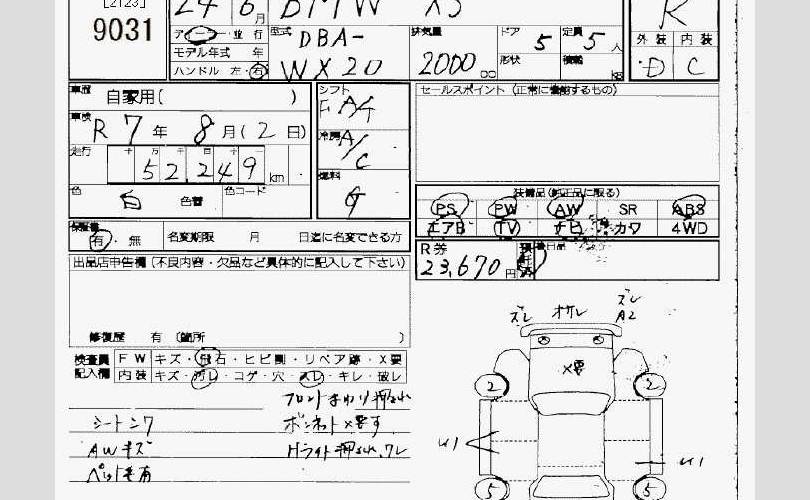 [2123]
9031
24 6月 BMW X3 R
ディーラー・並行
モデル年式 年
ハンドル 左・右
型式 DBA-
WX20
排気量 2000 cc
ドア 5
形状
定員 5 人
積載 kg
外装 内装
D C
車歴 自家用( )
シフト FA
セールスポイント (正常に機能するもの)
車検 R 7年 8月(2日)
冷房 A/C
走行 52,249 km
十 万 千 百 十 一
燃料 G
色 白 色替 色コード
装備品 (純正品に限る)
PS PW AW SR ABS
エアB TV ナビ カワ 4WD
保証書 有・無 名変期限 月 日迄に名変できる方
R券 23,670円
出品店申告欄 (不良内容・欠品など具体的に記入して下さい)
修復歴 有 (箇所 )
検査員記入欄
FW キズ・飛石・ヒビ割・リペア跡・X要
内装 キズ・汚レ・コゲ・穴・スレ・キレ・破レ
フロントまわり押され
シートシワ ボンネットX要す
AWキズ Hライト押され、ワレ
ペット毛有
ズレ オサレ ズレ
A2
X要
2 2
U1 U1
5 5